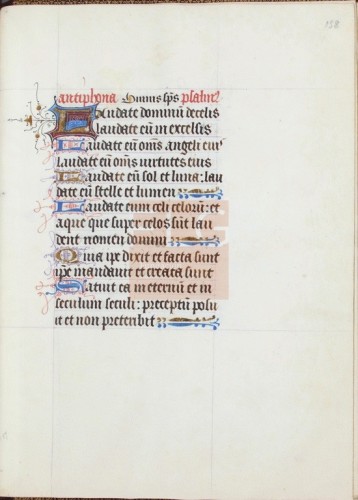 138
antiphona Omnis sps psalm9
Laudate dominū de celis
laudate eū in excelsis
Laudate eū om̄s angeli eiꝰ
laudate eū om̄s uirtutes eius
Laudate eū sol et luna : lau
date eū stelle et lumen
Laudate eum celi celorū : et
aque que super celos sūt lau
dent nomen domini
Quia ip̄e dixit et facta sunt
ip̄e mandauit et creata sunt
Statuit ea in eternū et in
seculum seculi : preceptū posu
it et non preteribit